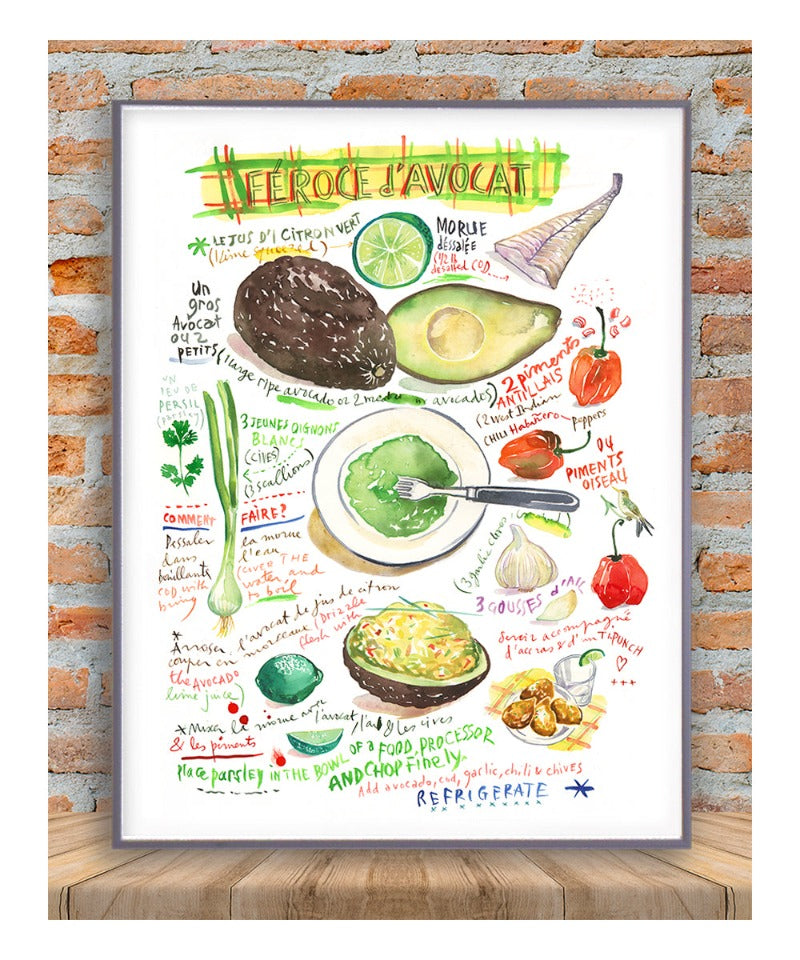 FÉROCE d'AVOCAT
LE JUS D'1 CITRON VERT
(1 lime squeezed)
MORUE
dessalée
(1/2 lb
desalted COD...)
Un
gros
Avocat
OU 2
PETITS
(1 large ripe avocado or 2 medium avocados)
2 piments
ANTILLAIS
(2 West Indian
CHILI Habanero peppers
OU
PIMENTS
OISEAU
UN
PEU DE
PERSIL
(parsley)
3 JEUNES OIGNONS
BLANCS
(CIVES)
(3 scallions)
(3 garlic cloves
3 GOUSSES d'AIL
COMMENT FAIRE?
Dessaler la morue
dans l'eau
bouillante
(COVER THE
COD with water and
bring to boil
* Arroser l'avocat de jus de citron
couper en morceaux (Drizzle
flesh with
the AVOCADO
lime juice)
Servir accompagné
d'accras & d'un Ti-PUNCH
+++
* Mixer la morue avec l'avocat, l'ail & les cives
& les piments
Place parsley IN THE BOWL OF a FOOD PROCESSOR
AND CHOP Finely.
Add avocado, cod, garlic, chili & chives
REFRIGERATE